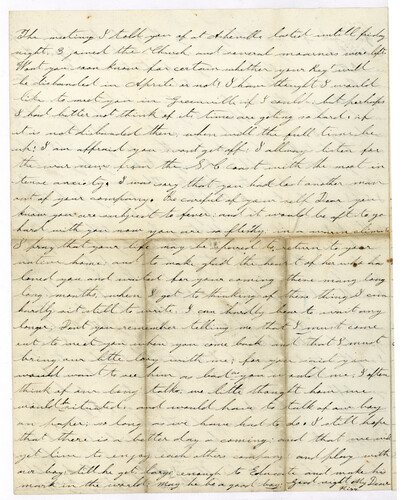 The meeting I told you of at Asheville lasted untill friday
night. 3 joined the Church and several mourners were left
Wont you soon know for certain whether your Reg't will
be disbanded in April or not? I have thought I would
like to meet you in Greenville if I could. but perhaps
I had better not think of it times are getting so hard. if
it is not disbanded then, when will the full time be
up? I am affraid you wont get off. I allways listen for
the war news from the S.C. coast with the most in
tense anxiety. I was sorry that you had lost another man
out of your company. Be careful of your self Dear you
know you are subject to fever and it would be apt to go
hard with you now you are so fleshy, in a warm climate
I pray that your life may be spared to return to your
native home and to make glad the heart of her who has
loved you and waited for your coming these many long
long months, when I get to thinking of these things I can
hardly sit still to write. I can hardly bear to wait any
longer, Dont you remember telling me that I must come
out to meet you when you come back and that I must
bring our little boy with me; for you said you
would want to see him as bad as you would me; I often
think of our long talks, we little thought how we
would be situated, and would have to talk of our boy
on paper; so long as we have had to do. I still hope
that there is a better day a coming; and that we will
yet live to enjoy each others company and play with
our boy till he gets large enough to educate and make his
mark in the world. May he be a good boy. Good night My Dear